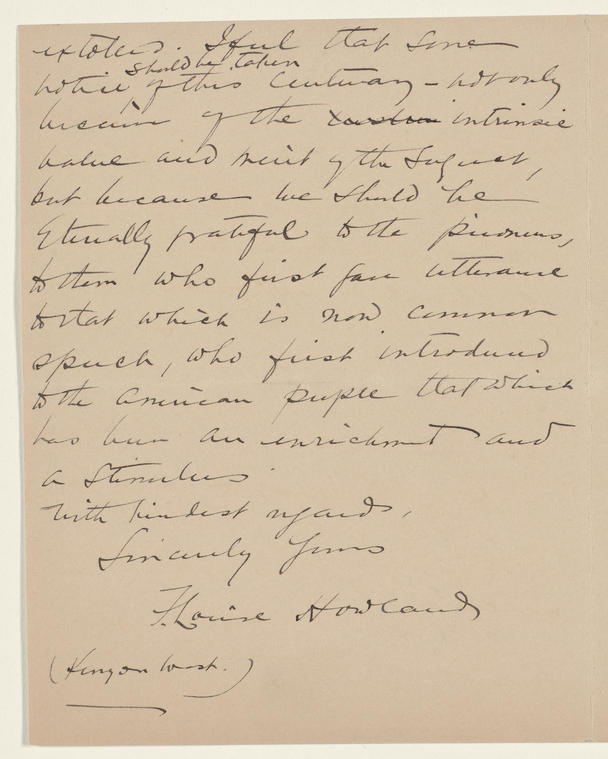 extolled. I feel that some
should be taken
notice of this centenary – not only
because of the intrinsic
value and merit of the subject,
but because we should be
Eternally grateful to the pioneers,
to them who first gave utterance
to that which is now common
speech, who first introduced
to the American people that which
has been an enrichment and
a stimulus
With kindest regards,
Sincerely Yours
F. Louise Howland
(Kenyon West.)